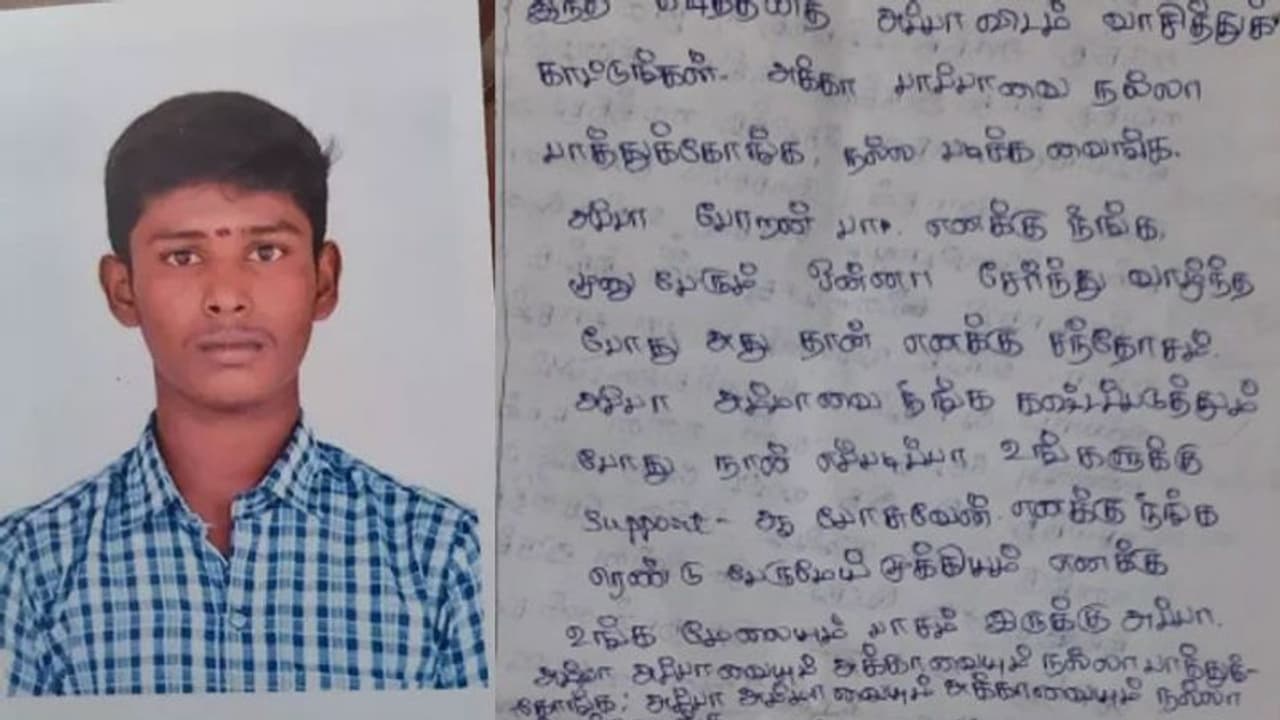 இந்த கடிதத்தை அப்பாவிடம் வாசித்துக்
காட்டுங்கள். அக்கா பாப்பாவை நல்லா
பாத்துக்கோங்க, நல்ல படிக்க வைங்க.
அப்பா போறன் பா. எனக்கு நீங்க
மூனு பேரும் ஒன்னா சேர்ந்து வாழ்ந்த
போது அது தான் எனக்கு சந்தோசம்.
அப்பா அம்மாவை நீங்க கஷ்டப்படுத்தும்
போது நான் எப்படிப்பா உங்களுக்கு
Support-ஆ பேசுவேன். எனக்கு நீங்க
ரெண்டு பேருமே முக்கியம் எனக்கு
உங்க மேலையும் பாசம் இருக்கு அப்பா.
அப்பா அம்மாவையும் அக்காவையும் நல்லா பாத்துக்-
கோங்க; அப்பா அம்மாவையும் அக்காவையும் நல்லா